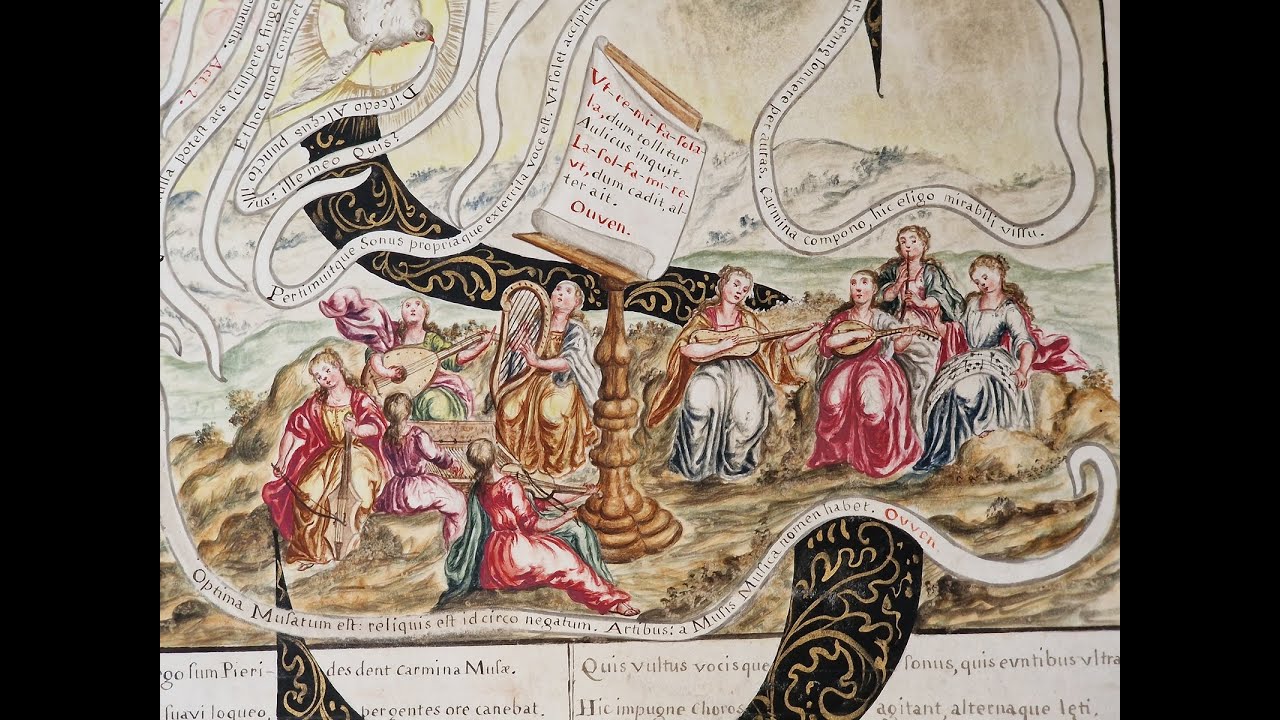 Act. 2.
ulla potest ars sculpere finge
Et hoc quod continet
Discedo Alcæus puncto ill
ius: ille meo Quis?
Pertimuitque Sonus propriaque exterrita voce est. Vt solet accipitr
Vt-re-mi-fa-sol-
la, dum tollitur
Aulicus inquit.
La-sol-fa-mi-re-
vt, dum cadit, al-
ter ait.
Ouven.
penne sonuere per auras. Carmina compono, hic eligo mirabili vissu.
Optima Musatum est: reliquis est id circo negatum. Artibus: a Musis Musica nomen habet. Ovven.
go sum Pieri- des dent carmina Musæ.
suavi loqueo, pergentes ore canebat.
Quis vultus vocisque sonus, quis euntibus ultra
Hic impugne Choros agitant, alternaque leti.